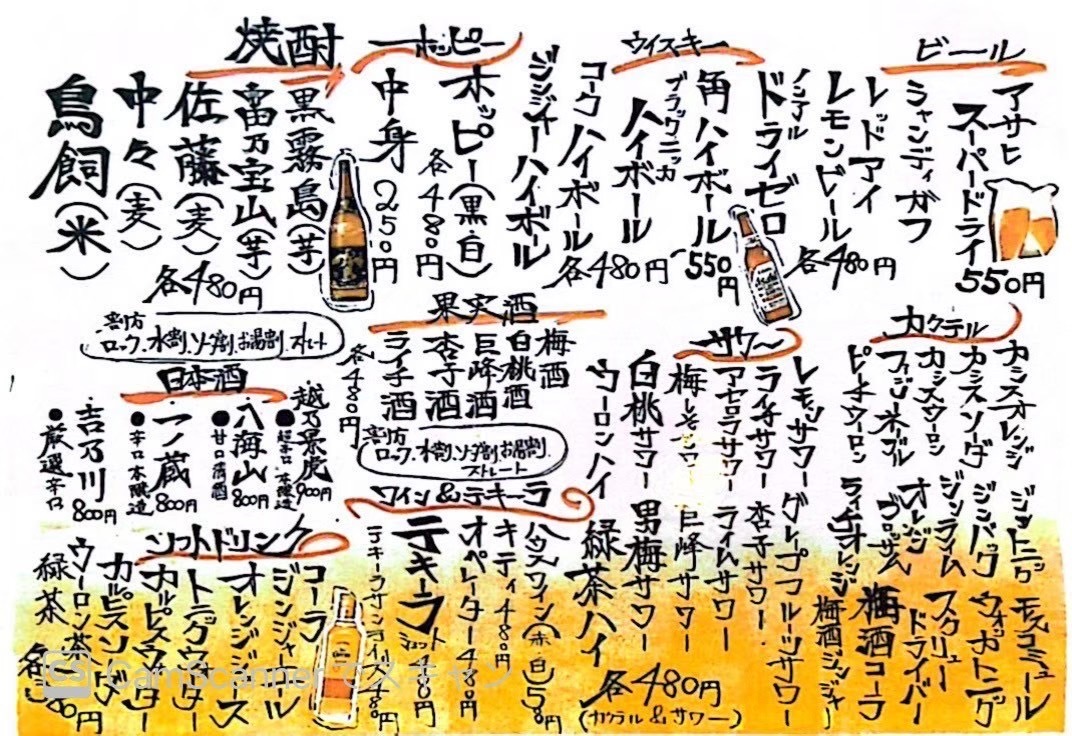 ビール
アサヒ
スーパードライ
550円
シャンディガフ
レッドアイ
レモンビール
各480円
ノンアル
ドライゼロ
ウイスキー
角ハイボール
550円
ブラックニッカ
ハイボール
コークハイボール
ジンジャーハイボール
各480円
ホッピー
ホッピー(黒・白)
各480円
中身250円
焼酎
黒霧島(芋)
富乃宝山(芋)
佐藤(麦)
中々(麦)
鳥飼(米)
各480円
割方
ロック、水割、ソーダ割、お湯割、ストレート
カクテル
カシスオレンジ
カシスソーダ
カシスウーロン
ファジーネーブル
ピーチウーロン
ジントニック
ジンバック
ジンライム
オレンジ
ブロッサム
ライチオレンジ
モスコミュール
ウォッカトニック
スクリュー
ドライバー
梅酒コーラ
梅酒ジンジャー
サワー
レモンサワー
ライチサワー
アセロラサワー
梅レモンサワー
白桃サワー
ウーロンハイ
グレープフルーツサワー
杏子サワー
ライムサワー
巨峰サワー
男梅サワー
緑茶ハイ
各480円
(カクテル&サワー)
果実酒
梅酒
白桃酒
巨峰酒
杏子酒
ライチ酒
各480円
割方
ロック、水割、ソーダ割、お湯割、
ストレート
ワイン&テキーラ
ハウスワイン(赤・白)
キティ480円
オペレーター480円
テキーラ
ショット
テキーラサンライズ480円
日本酒
越乃景虎
900円
●超辛口 本醸造
八海山
800円
●甘口 清酒
一ノ蔵
800円
●辛口 本醸造
吉乃川
800円
●厳選辛口
ソフトドリンク
コーラ
ジンジャーエール
オレンジジュース
トニックウォーター
カルピスウォーター
カルピスソーダ
ウーロン茶
緑茶
CS CamScanner でスキャン